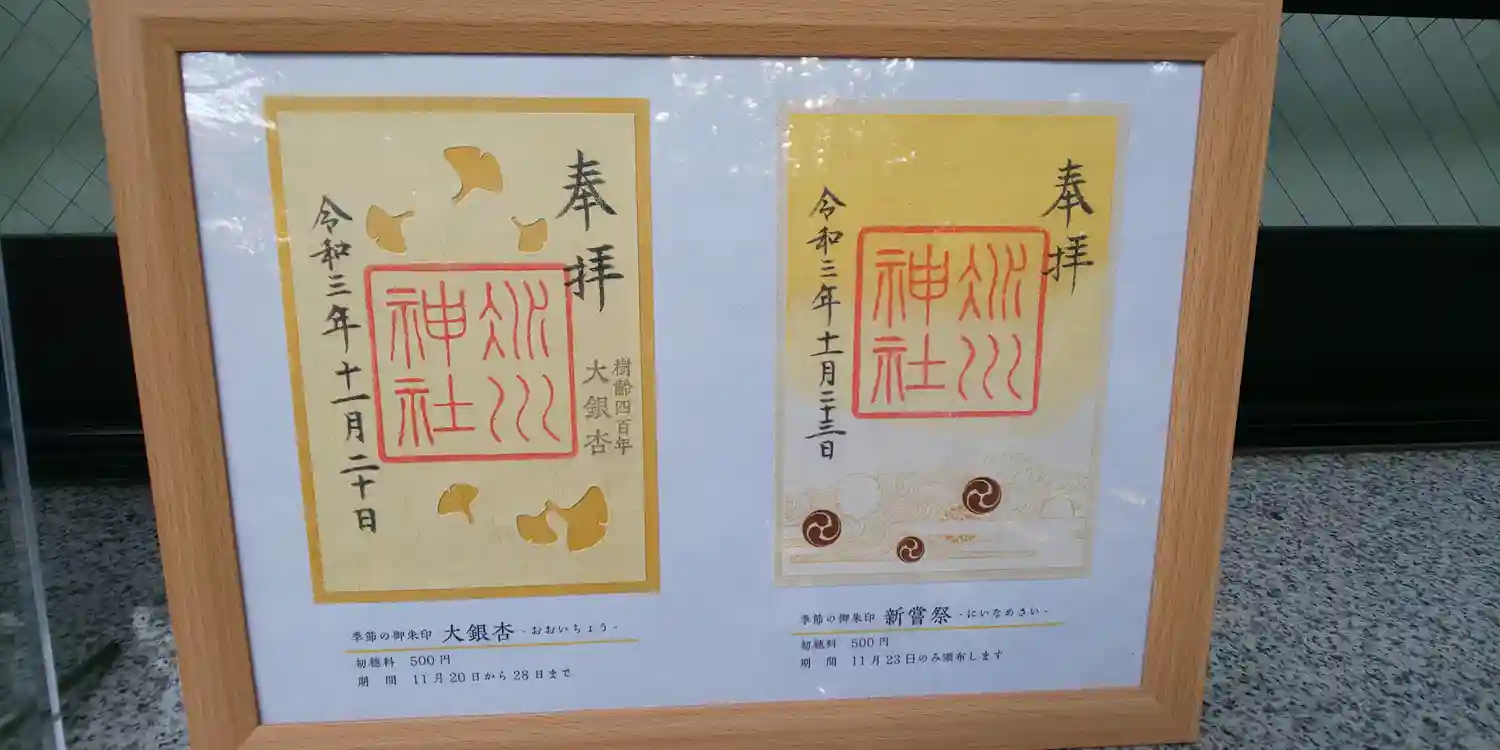 奉拝
樹齢四百年
大銀杏
冰川
神社
令和三年十一月二十日
季節の御朱印 大銀杏 -おおいちょう-
初穂料 500円
期 間 11月20日から28日まで
奉拝
冰川
神社
令和三年十一月二十三日
季節の御朱印 新嘗祭 -にいなめさい-
初穂料 500円
期 間 11月23日のみ頒布します